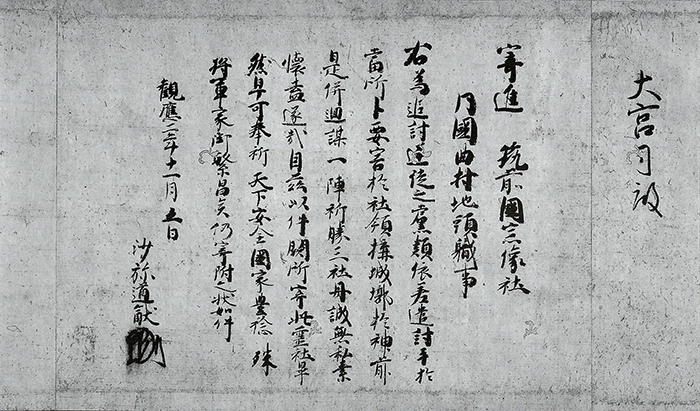 寄進 筑前國宗像社
同國曲村地頭職事
右為追討逆徒之黨類依差遣討手於
當所卜要害於社領搆城墎於神前
是併廻謀一陣祈勝三社丹誠無私素
懐盍遂哉自茲以件闕所寄此靈社早
然早可奉祈天下安全國家豊稔殊
将軍家御繁昌矣仍寄附之状如件
觀應二年十一月五日
沙弥道猷
大宮司殿